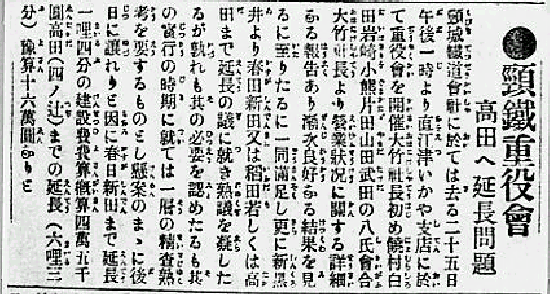 ●頸鐵重役會
高田へ延長問題
頸城鐵道會社に於ては去る二十五日
午後一時より直江津いかや支店に於
て重役會を開催大竹社長初め饒村白
田岩崎小熊片田山田武田の八氏會合
大竹社長より營業狀况に關する詳細
ある報告あり漸次良好ある結果を見
るに至りたるに一同滿足し更に新黑
井より春日新田又は稻田若しくは高
田まで延長の議に就き熟議を凝した
るが孰れも其の必要を認めたるも其
の實行の時期に就ては一層の精査熟
考を要するものとし懸案のまゝに後
日に護れりと因に春日新田まで延長
一哩四分の建設費槪算四萬五千
圓高田(四ノ辻)までの延長(六哩三
分)豫算十六萬圓ありと